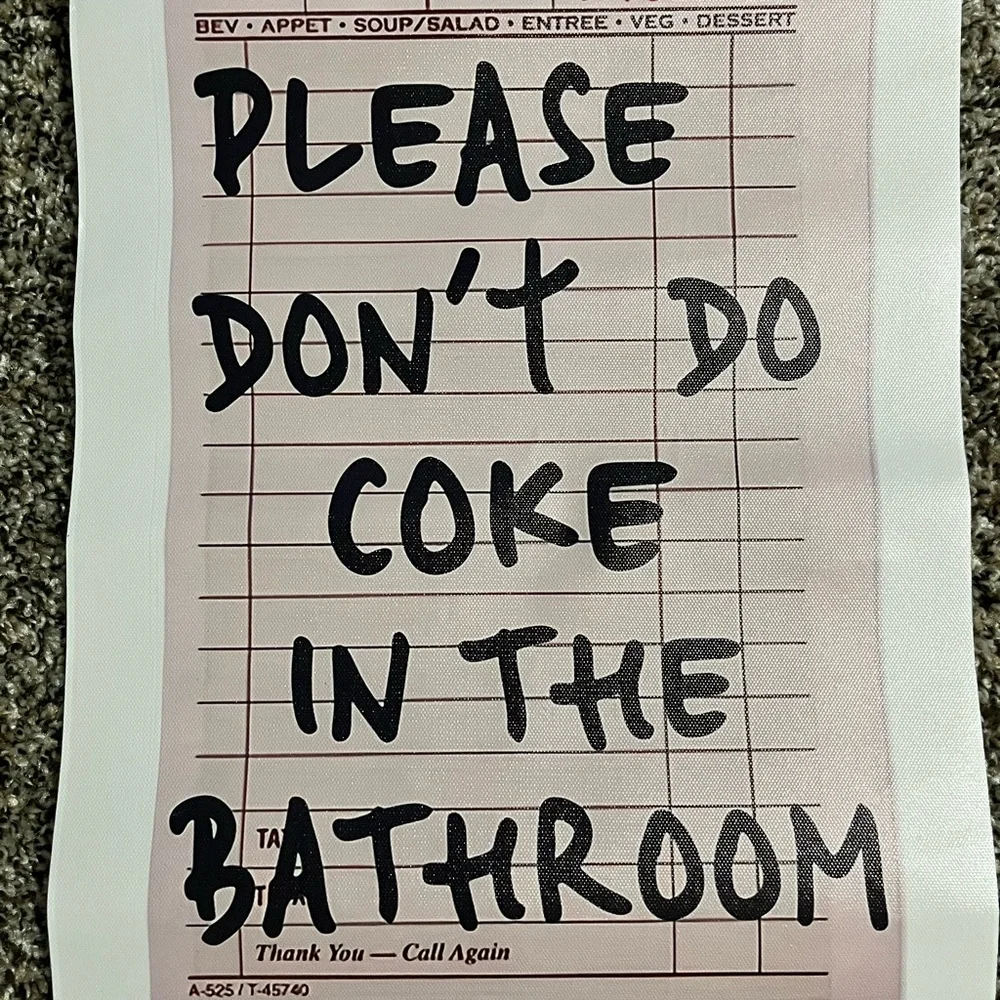 BEV • APPET • SOUP/SALAD • ENTREE • VEG • DESSERT
PLEASE
DON'T DO
COKE
IN THE
BATHROOM
Thank You — Call Again
A-525 / T-45740